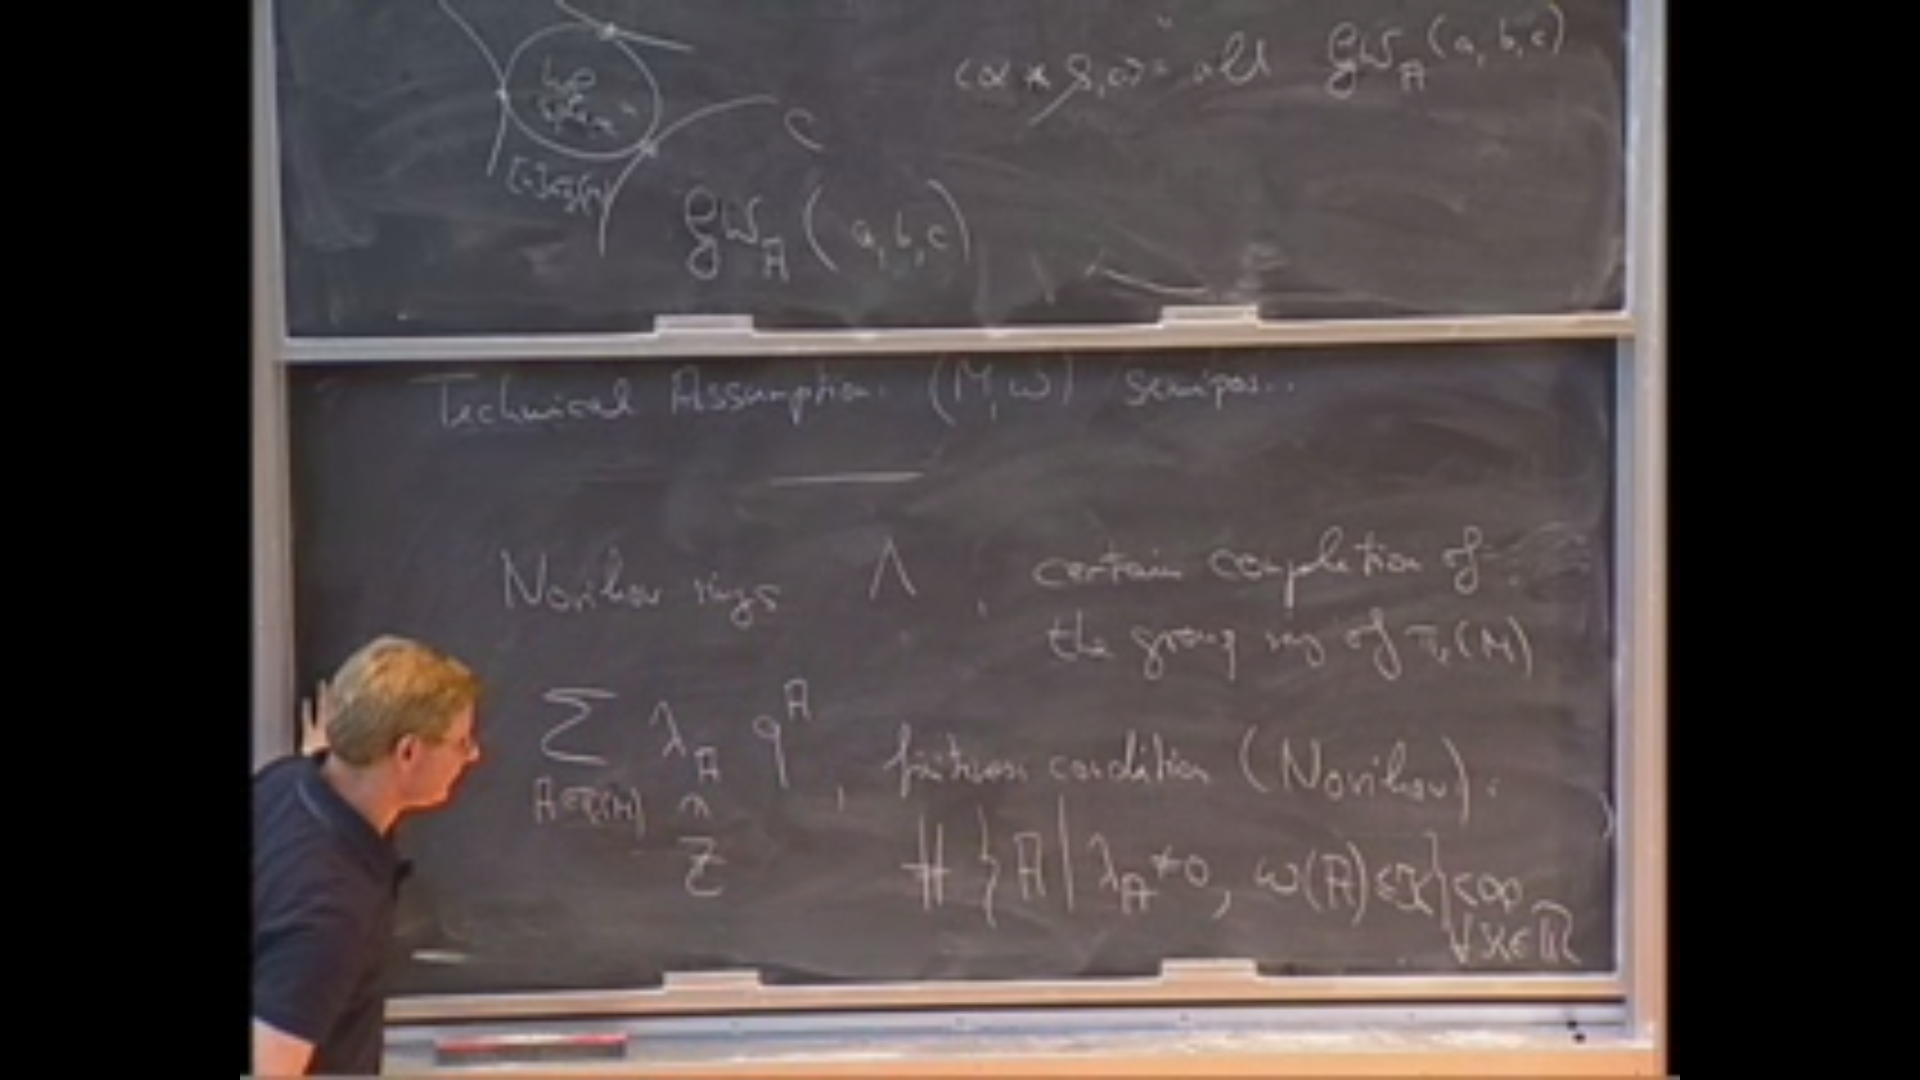 (α * β, a) = all GW_A (a, b, c)
C
GW_A (a, b, c)
Technical Assumption. (M, ω) semipos..
Novikov rings Λ, certain completion of
the group ring of π₂(M)
∑ λ_A q^A, finiteness condition (Novikov).
A∈π₂(M)
Z
# {A | λ_A ≠ 0, ω(A) ≤ K} < ∞
∀ K ∈ ℝ